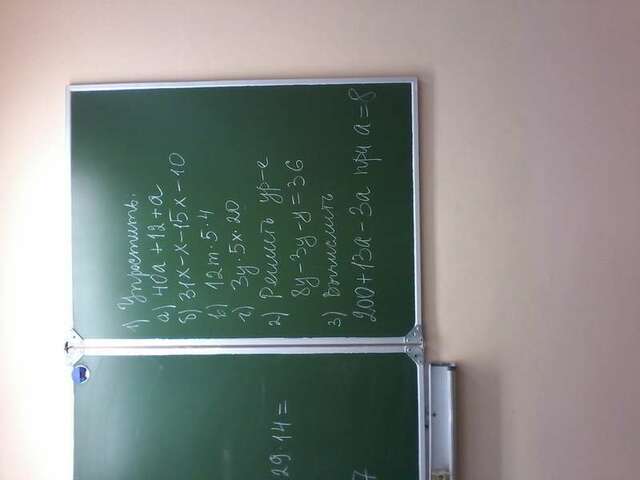 1) Упростить.
а) 40а + 12 + а
б) 31х - х - 15х - 10
в) 12m · 5 · 4
г) 3у · 5х · 20
2) Решить ур-е
8у - 3у - у = 36
3) Вычислить
200 + 13а - 3а при а = 8
29 · 14 =
7